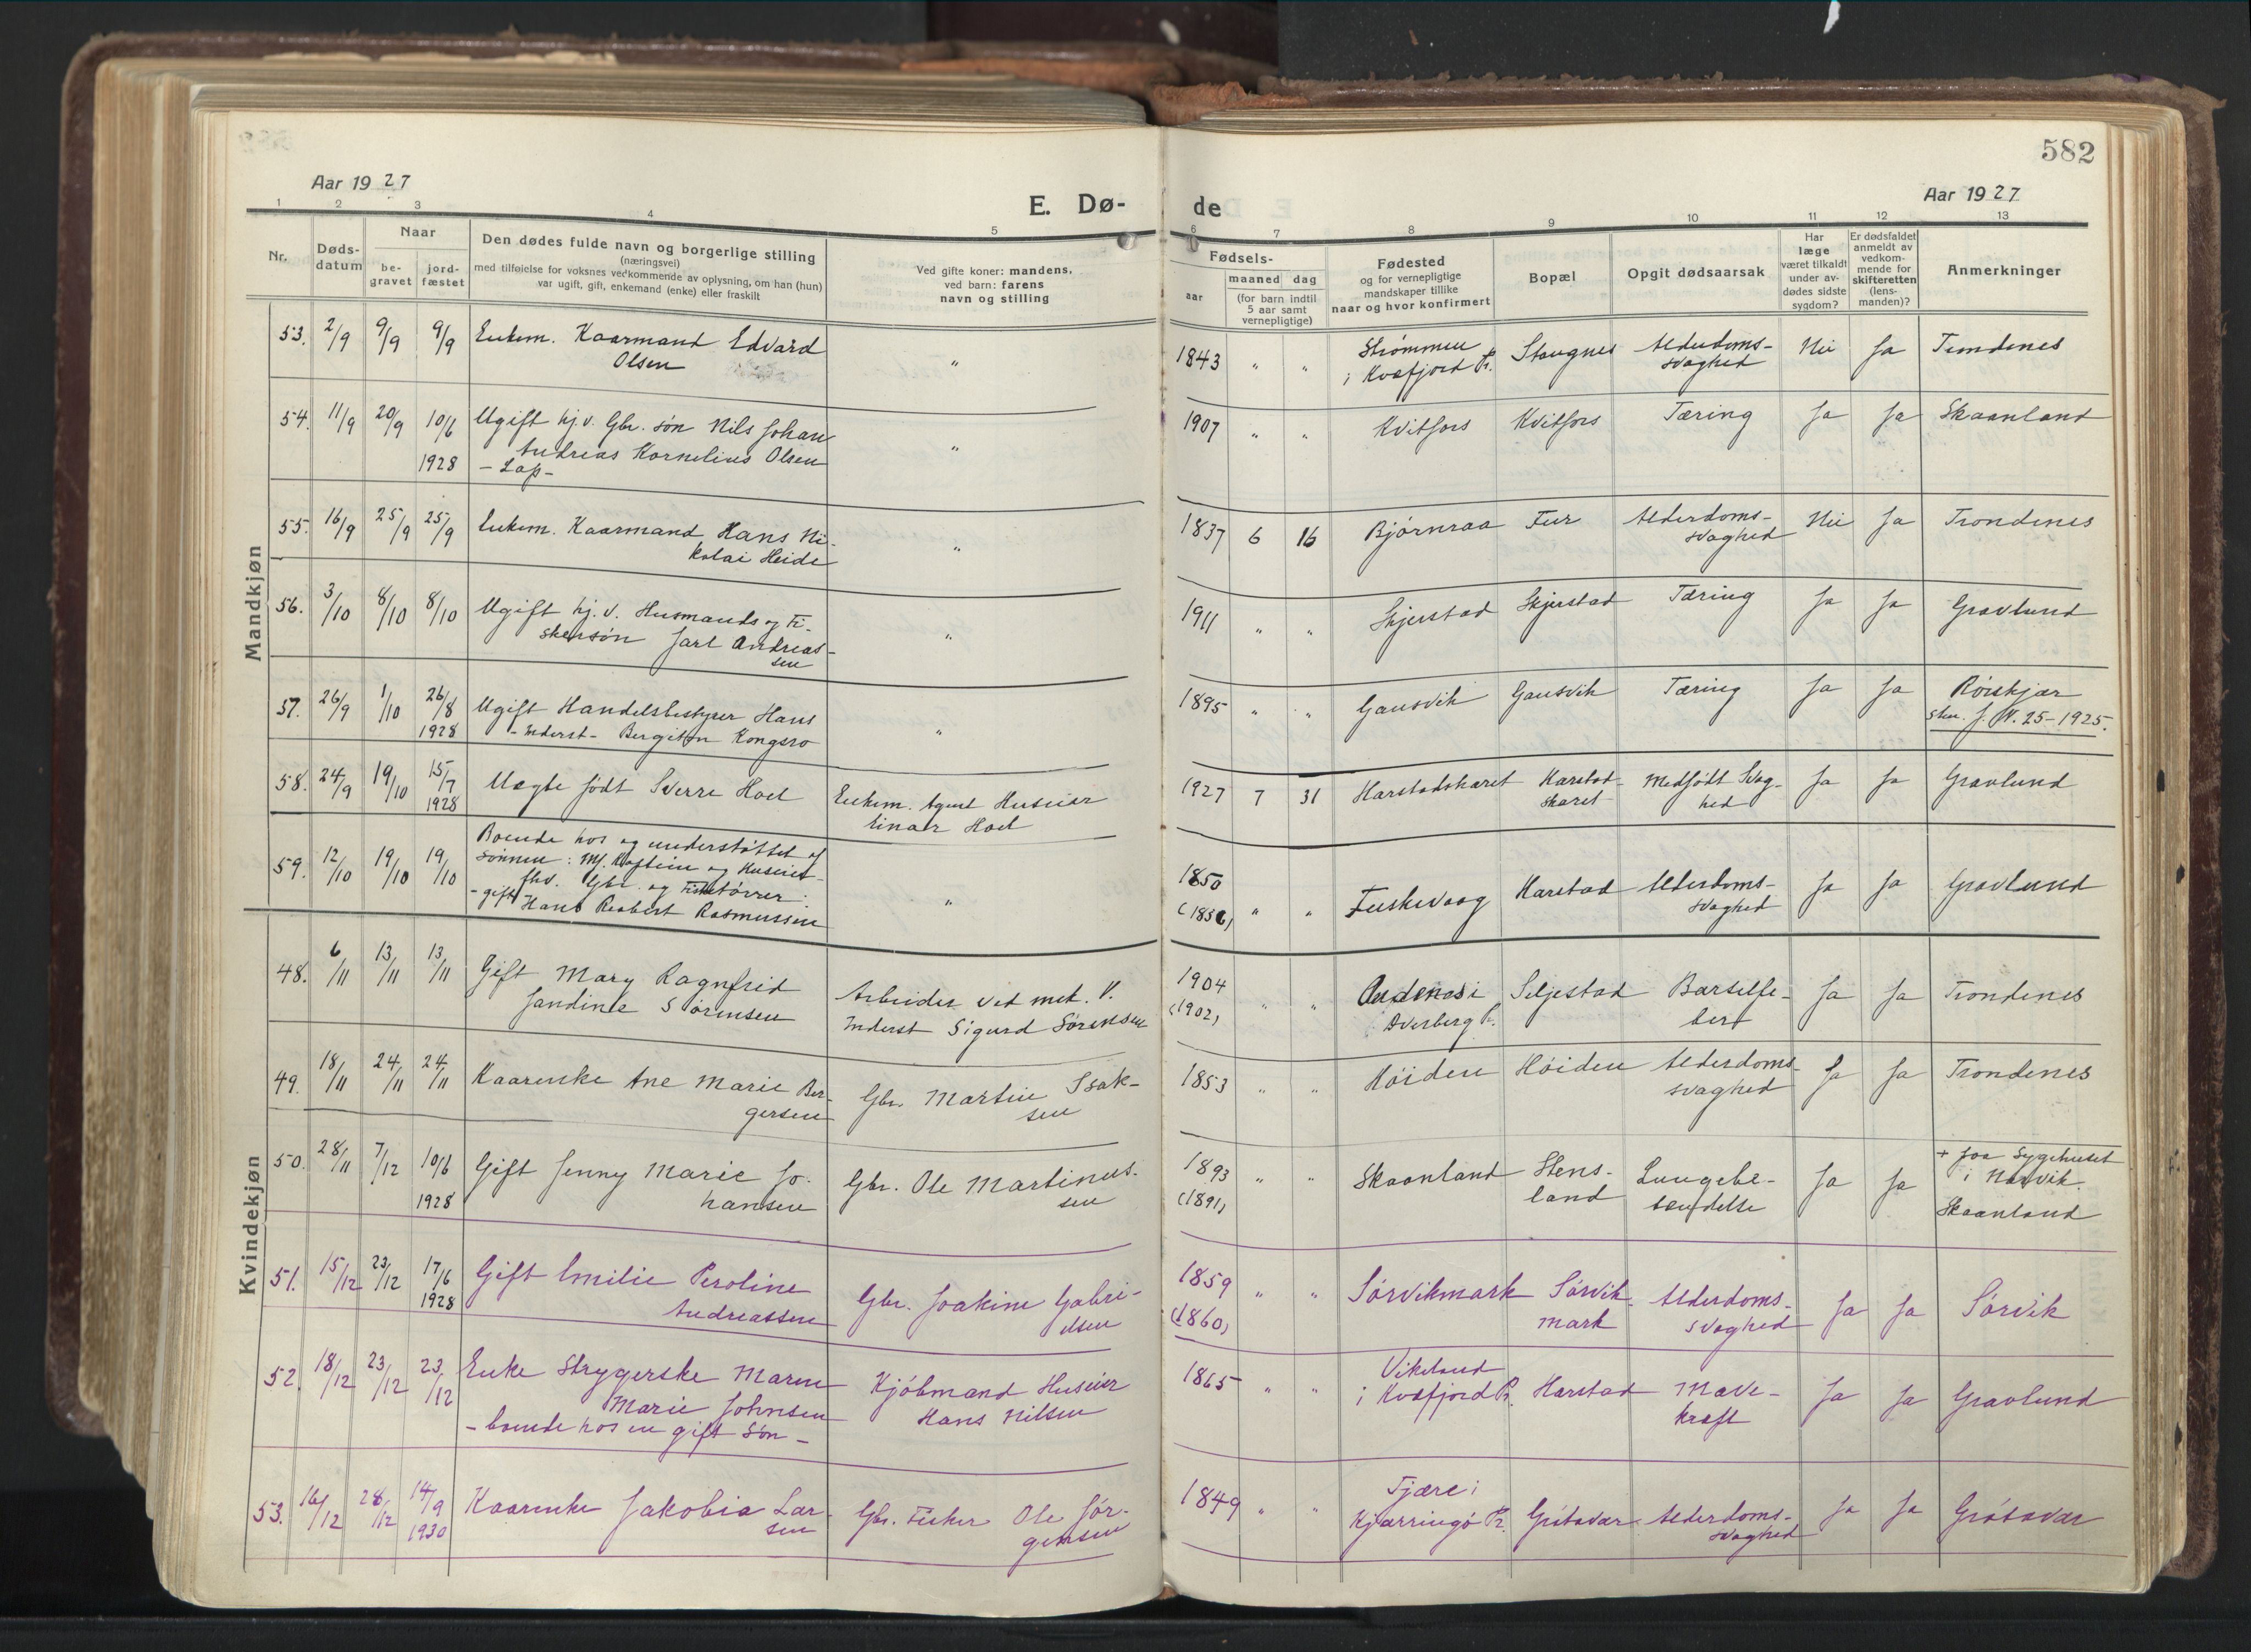 582
Aar 1927
E. Dø-
de
Aar 1927
1 2 3 4 5 6 7 8 9 10 11 12 13
Nr.
Døds-
datum
Naar
be-
gravet
jord-
fæstet
Den dødes fulde navn og borgerlige stilling
(næringsvei)
med tilføielse for voksnes vedkommende av oplysning, om han (hun)
var ugift, gift, enkemand (enke) eller fraskilt
Ved gifte koner: mandens,
ved barn: farens
navn og stilling
Fødsels-
aar
maaned dag
(for barn indtil
5 aar samt
vernepligtige)
Fødested
og for vernepligtige
mandskaper tillike
naar og hvor konfirmert
Bopæl
Opgit dødsaarsak
Har
læge
været tilkaldt
under av-
dødes sidste
sygdom?
Er dødsfaldet
anmeldt av
vedkom-
mende for
skifteretten
(lens-
manden)?
Anmerkninger
Mandkjøn
53. 2/9 9/9 9/9 Enkem. Kaarmand Edvard
Olsen
" 1843 " " Strømmen
i Kvæfjord Pr.
Stangnes Alderdoms-
svaghed
Nei Ja Trondenes
54. 11/9 20/9 10/6
1928
Ugift hj.v. Gbr. søn Nils Johan
Andreas Kornelius Olsen
- Lap -
" 1907 " " Kvitfors Kvitfors Tæring Ja Ja Skaanland
55. 16/9 25/9 25/9 Enkem. Kaarmand Hans Ni-
kolai Heide
" 1837 6 16 Bjørnraa Fur Alderdoms-
svaghed
Nei Ja Trondenes
56. 3/10 8/10 8/10 Ugift hj.v. Husmands og Fi-
skersøn Jarl Andreas-
sen
" 1911 " " Skjerstad Skjerstad Tæring Ja Ja Gravlund
57. 26/9 1/10 26/8
1928
Ugift Handelsbestyrer Hans
- Inderst - Bergiton Kongsro
" 1895 " " Gausvik Gausvik Tæring Ja Ja Røiskjær
25-1925.
58. 24/9 19/10 15/7
1928
Uægte født Sverre Hoel
Enkem. Agent Huseier
Einar Hoel
1927 7 31 Harstadskaret Harstad-
skaret
Medfødt Svag-
hed
Ja Ja Gravlund
59. 12/10 19/10 19/10
Boende hos og understøttet af
sønnen: Kaptein og Huseier
fhv. Gbr. og Fisketørrer:
- gift - Hans Reabert Rasmussen
" 1850
(1836)
" " Fuskevaag Harstad Alderdoms-
svaghed
Ja Ja Gravlund
Kvindekjøn
48. 6/11 13/11 13/11 Gift Mary Ragnfrid
Jandine Sørensen
Arbeider ved mek. V.
Inderst Sigurd Sørensen
1904
(1902)
" " Andenes i
Dverberg Pr.
Seljestad Barselfe-
ber
Ja Ja Trondenes
49. 18/11 24/11 24/11 Kaarenke Ane Marie Ber-
gersen
Gbr. Martin Isak-
sen
1853 " " Høiden Høiden Alderdoms-
svaghed
Ja Ja Trondenes
50. 28/11 7/12 10/6
1928
Gift Jenny Marie Jo-
hansen
Gbr. Ole Martinus-
sen
1893
(1891)
" " Skaanland Stens-
land
Lungebe-
tændelse
Ja Ja + paa Sygehuset
i Narvik.
Skaanland
51. 15/12 23/12 17/6
1928
Gift Emilie Peroline
Andreassen
Gbr. Joakim Gabri-
elsen
1859
(1860)
" " Sørvikmark Sørvik-
mark
Alderdoms-
svaghed
Ja Ja Sørvik
52. 18/12 23/12 23/12 Enke Strygerske Maren
Marie Johnsen
- boende hos en gift Søn -
Kjøbmand Huseier
Hans Nilsen
1865 " " Vikeland
i Kvæfjord Pr.
Harstad Mave-
kræft
Ja Ja Gravlund
53. 16/12 28/12 14/9
1930
Kaarenke Jakobia Lar-
sen
Gbr. Fisker Ole Jør-
gensen
1849 " " Tjære i
Kjærringø Pr.
Grøtavær Alderdoms-
svaghed
Ja Ja Grøtavær